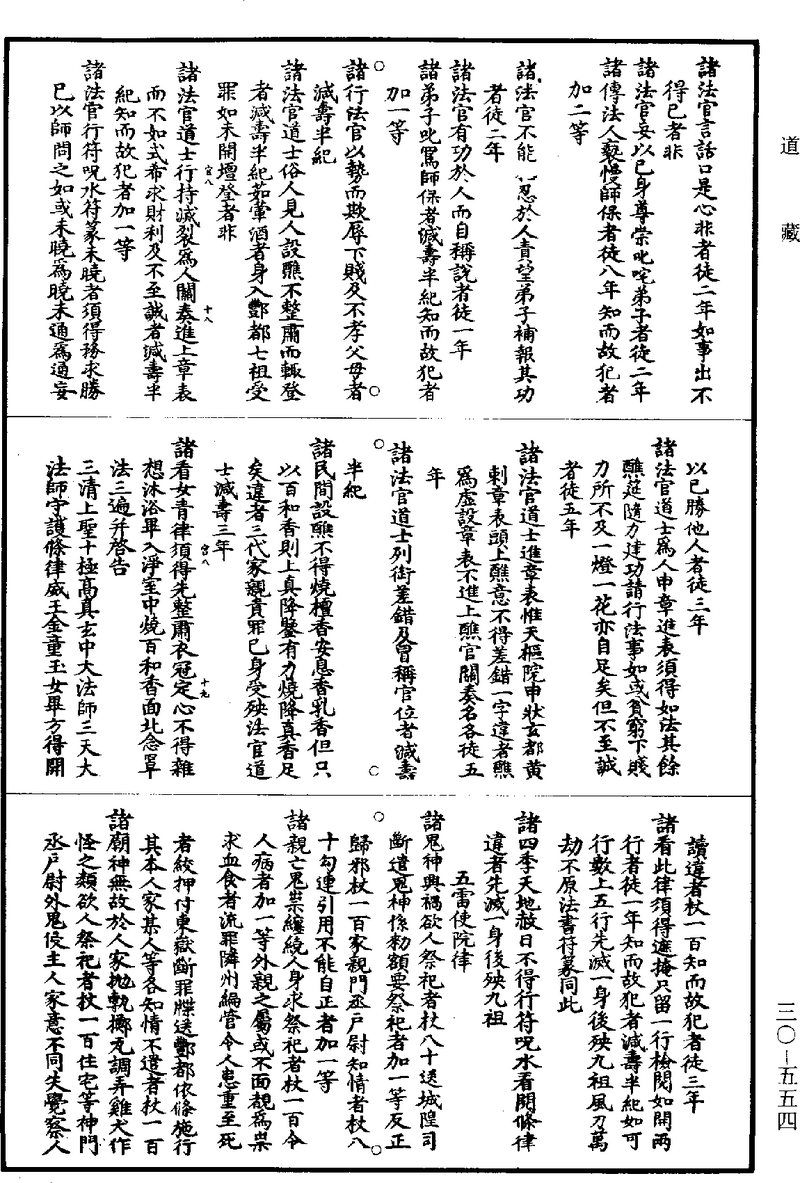 道藏
諸法官言話口是心非者徒二年如事出不
得已者非
諸法官妄以已身尊崇叱咤弟子者徒二年
諸傳法人褻慢師保者徒八年知而故犯者
加二等
諸法官不能 忍於人責望弟子補報其功
者徒二年
諸法官有功於人而自稱說者徒一年
諸弟子叱罵師保者減壽半紀知而故犯者
加一等
諸行法官以勢而欺辱下賤及不孝父母者
減壽半紀
諸法官道士俗人見人設醮不整肅而輙登
者減壽半紀茹葷酒者身入酆都七祖受
罪如未開壇登者非
諸法官道士行持滅裂爲人關奏進上章表
而不如式希求財利及不至誠者減壽半
紀知而故犯者加一等
諸法官行符呪水符篆未曉者須得務求勝
已以師問之如或未曉爲曉未通爲通妄
以已勝他人者徒三年
諸法官道士爲人申章進表須得如法其餘
醮筵隨力建功請行法事如或貧窮下賤
力所不及一燈一花亦自足矣但不至誠
者徒五年
諸法官道士進章表惟天樞院申狀玄都黄
剌章表頭上醮意不得差錯一字違者醮
爲虛設章表不進上醮官關奏名各徒五
年
諸法官道士列銜差錯及曾稱官位者減壽
半紀
諸民間設醮不得燒檀香安息香乳香但只
以百和香則上真降鑒有力燒降真香足
矣違者三代家親責罪已身受殃法官道
士減壽三年
諸看女青律須得先整肅衣冠定心不得雜
想沐浴畢入淨室中燒百和香面北念罩
法三遍并啓告
三清上聖十極高真玄中大法師三天大
法師守護條律威王金童玉女畢方得開
讀違者杖一百知而故犯者徒三年
諸看此律須得遮掩只留一行檢閱如開兩
行者徒一年知而故犯者減壽半紀如可
行數上五行先滅一身後殃九祖風刀萬
劫不原法書符篆同此
諸四季天地赦日不得行符呪水看閱條律
違者先滅一身後殃九祖
五雷使院律
諸鬼神興禍欲人祭祀者杖八十送城隍司
斷遣鬼神係勑額要祭祀者加一等反正
歸邪杖一百家親門丞戸尉知情者杖八
十勾連引用不能自正者加一等
諸親亡鬼祟纏繞人身求祭祀者杖一百令
人病者加一等外親之屬或不面親爲祟
求血食者流罪隣州編管令人患重至死
者絞押付東嶽斷罪牒送酆都依條施行
其本人家某人等各知情不遣者杖一百
諸廟神無故於人家抛執擲瓦調弄雞犬作
怪之類欲人祭祀者杖一百住宅等神門
丞戸尉外鬼侵主人家意不同失覺察人
三〇-五五四